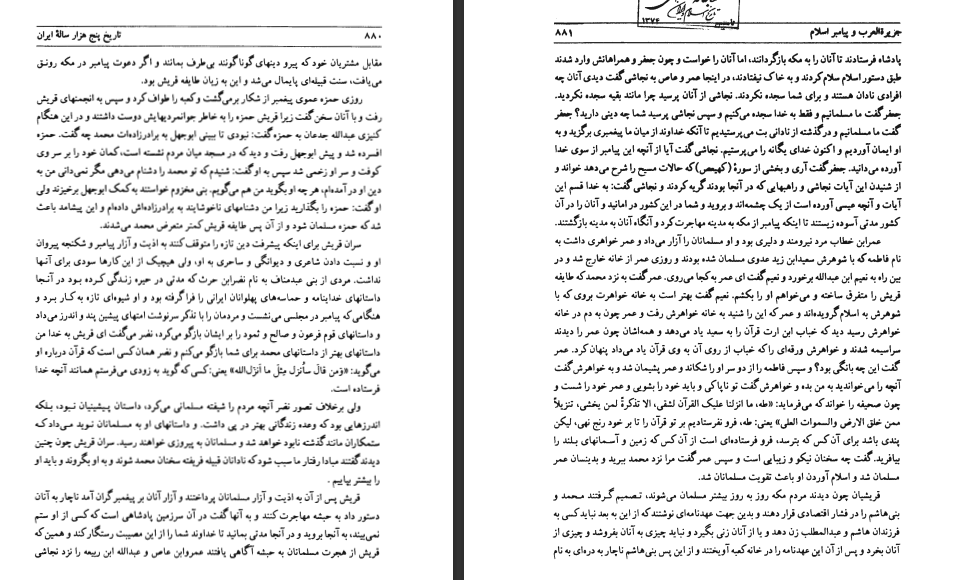 ۸۸۰
تاریخ پنج هزار سالهٔ ایران
مقابل مشتریان خود که پیرو دینهای گوناگونند بی‌طرف بمانند و اگر دعوت پیامبر در مکه رونق
می‌یافت، سنت قبیله‌ای پایمال می‌شد و این به زیان طایفه قریش بود.
روزی حمزه عموی پیغمبر از شکار برمی‌گشت وکعبه را طواف کرد و سپس به انجمنهای قریش
رفت و با آنان سخن گفت زیرا قریش حمزه را به خاطر جوانمردیهایش دوست داشتند و در این هنگام
کنیزی عبدالله جدعان به حمزه گفت: نبودی تا ببینی ابوجهل به برادرزاده‌ات محمد چه گفت. حمزه
افسرده شد و پیش ابوجهل رفت و دید که در مسجد میان مردم نشسته است، کمان خود را بر سر وی
کوفت و سر او زخمی شد سپس به اوگفت: شنیدم که تو محمد را دشنام می‌دهی مگر نمی‌دانی من به
دین او درآمده‌ام، هر چه او بگوید من هم می‌گویم. بنی مخزوم خواستند به‌کمک ابوجهل برخیزند ولی
او گفت: حمزه را بگذارید زیرا من دشنامهای ناخوشایند به برادرزاده‌اش داده‌ام و این پیشامد باعث
شد که حمزه مسلمان شود و از آن پس طایفه قریش کمتر متعرض محمد می‌شدند.
سران قریش برای اینکه پیشرفت دین تازه را متوقف کنند به اذیت و آزار پیامبر و شکنجه پیروان
او و نسبت دادن شاعری و دیوانگی و ساحری به او، ولی هیچیک از این کارها سودی برای آنها
نداشت. مردی از بنی عبدمناف به نام نضرابن حرث که مدتی در حیره زندگی کرده بود در آنجا
داستانهای خداینامه و حماسه‌های پهلوانان ایرانی را فرا گرفته بود و او شیوه‌ای تازه به کار برد و
هنگامی‌که پیامبر در مجلسی می‌نشست و مردمان را با تذکر سرنوشت امتهای پیشین پند و اندرز می‌داد
و داستانهای قوم فرعون و صالح و ثمود را بر ایشان بازگو می‌کرد، نضر می‌گفت ای قریش به خدا من
داستانهای بهتر از داستانهای محمد برای شما بازگو می‌کنم و نضر همان کسی است که قرآن درباره او
می‌گوید: «وَمن قالَ سأُنزل مِثلَ ما اَنزَل‌الله» یعنی:کسی‌که گوید به زودی می‌فرستم همانند آنچه خدا
فرستاده است.
ولی برخلاف تصور نضر آنچه مردم را شیفته مسلمانی می‌کرد، داستان پیشینیان نبود، بلکه
اندرزهایی بود که وعده زندگانی بهتر در پی داشت. و داستانهای او به مسلمانان نوید می‌داد که
ستمکاران مانندگذشته نابود خواهند شد و مسلمانان به پیروزی خواهند رسید. سران قریش چون چنین
دیدند گفتند مبادا رفتار ما سبب شود که نادانان قبیله فریفته سخنان محمد شوند و به او بگروند و باید او
را بیشتر بپاییم.
قریش پس از آن به اذیت و آزار مسلمانان پرداختند و آزار آنان بر پیغمبرگران آمد ناچار به آنان
دستور داد به حبشه مهاجرت کنند و به آنها گفت در آن سرزمین پادشاهی است که کسی از او ستم
نمی‌بیند، به آنجا بروید و در آنجا مدتی بمانید تا خداوند شما را از این مصیبت رستگار کند و همین که
قریش از هجرت مسلمانان به حبشه آگاهی یافتند عمروابن عاص و عبدالله ابن ربیعه را نزد نجاشی
۱۳۷۶
جزیرةالعرب و پیامبر اسلام
۸۸۱
پادشاه فرستادند تا آنان را به مکه بازگردانند، اما آنان را خواست و چون جعفر و همراهانش وارد شدند
طبق دستور اسلام سلام کردند و به خاک نیفتادند، در اینجا عمر و عاص به نجاشی گفت دیدی آنان چه
افرادی نادان هستند و برای شما سجده نکردند. نجاشی از آنان پرسید چرا مانند بقیه سجده نکردید.
جعفرگفت ما مسلمانیم و فقط به خدا سجده می‌کنیم و سپس نجاشی پرسید شما چه دینی دارید؟ جعفر
گفت ما مسلمانیم و درگذشته از نادانی بت می‌پرستیدیم تا آنکه خداوند از میان ما پیغمبری برگزید و به
او ایمان آوردیم و اکنون خدای یگانه را می‌پرستیم. نجاشی گفت آیا از آنچه این پیامبر از سوی خدا
آورده می‌دانید. جعفرگفت آری و بخشی از سورهٔ (کهیعص) که حالات مسیح را شرح می‌دهد خواند و
از شنیدن این آیات نجاشی و راهبهایی که در آنجا بودند گریه کردند و نجاشی‌گفت: به خدا قسم این
آیات و آنچه عیسی آورده است از یک چشمه‌اند و بروید و شما در این کشور در امانید و آنان را در آن
کشور مدتی آسوده زیستند تا اینکه پیامبر از مکه به مدینه مهاجرت کرد و آنگاه آنان به مدینه بازگشتند.
عمرابن خطاب مرد نیرومند و دلیری بود و او مسلمانان را آزار می‌داد و عمر خواهری داشت به
نام فاطمه که با شوهرش سعیدابن زید عدوی مسلمان شده بودند و روزی عمر از خانه خارج شد و در
بین راه به نعیم ابن عبدالله برخورد و نعیم گفت ای عمر به کجا می‌روی. عمرگفت به نزد محمد که طایفه
قریش را متفرق ساخته و می‌خواهم او را بکشم. نعیم گفت بهتر است به خانه خواهرت بروی که با
شوهرش به اسلام گرویده‌اند و عمر که این را شنید به خانه خواهرش رفت و عمر چون به دم در خانه
خواهرش رسید دید که خباب ابن ارت قرآن را به سعید یاد می‌دهد و همه‌اشان چون عمر را دیدند
سراسیمه شدند و خواهرش ورقه‌ای را که خباب از روی آن به وی قرآن یاد می‌داد پنهان کرد. عمر
گفت این چه بانگی بود؟ و سپس فاطمه را از دو سر او را شکاند و عمر پشیمان شد و به خواهرش گفت
آنچه را می‌خواندید به من بده و خواهرش گفت تو ناپاکی و باید خود را بشویی و عمر خود را شست و
چون صحیفه را خواند که می‌فرماید: «طه، ما انزلنا علیک القرآن لشقی، الا تذکرةً لمن یخشی، تنزیلاً
ممن خلق الارض والسموات العلی» یعنی: طه، فرو نفرستادیم بر تو قرآن را تا بر خود رنج نهی، لیکن
پندی باشد برای آن کس که بترسد، فرو فرستاده‌ای است از آن کس که زمین و آسمانهای بلند را
بیافرید. گفت چه سخنان نیکو و زیبایی است و سپس عمر گفت مرا نزد محمد ببرید و بدینسان عمر
مسلمان شد و اسلام آوردن او باعث تقویت مسلمانان شد.
قریشیان چون دیدند مردم مکه روز به روز بیشتر مسلمان می‌شوند، تصمیم گرفتند محمد و
بنی‌هاشم را در فشار اقتصادی قرار دهند و بدین جهت عهدنامه‌ای نوشتند که از این به بعد نباید کسی به
فرزندان هاشم و عبدالمطلب زن دهد و یا از آنان زنی بگیرد و نباید چیزی به آنان بفروشد و چیزی از
آنان بخرد و پس از آن این عهدنامه را در خانه کعبه آویختند و از این پس بنی‌هاشم ناچار به دره‌ای به نام